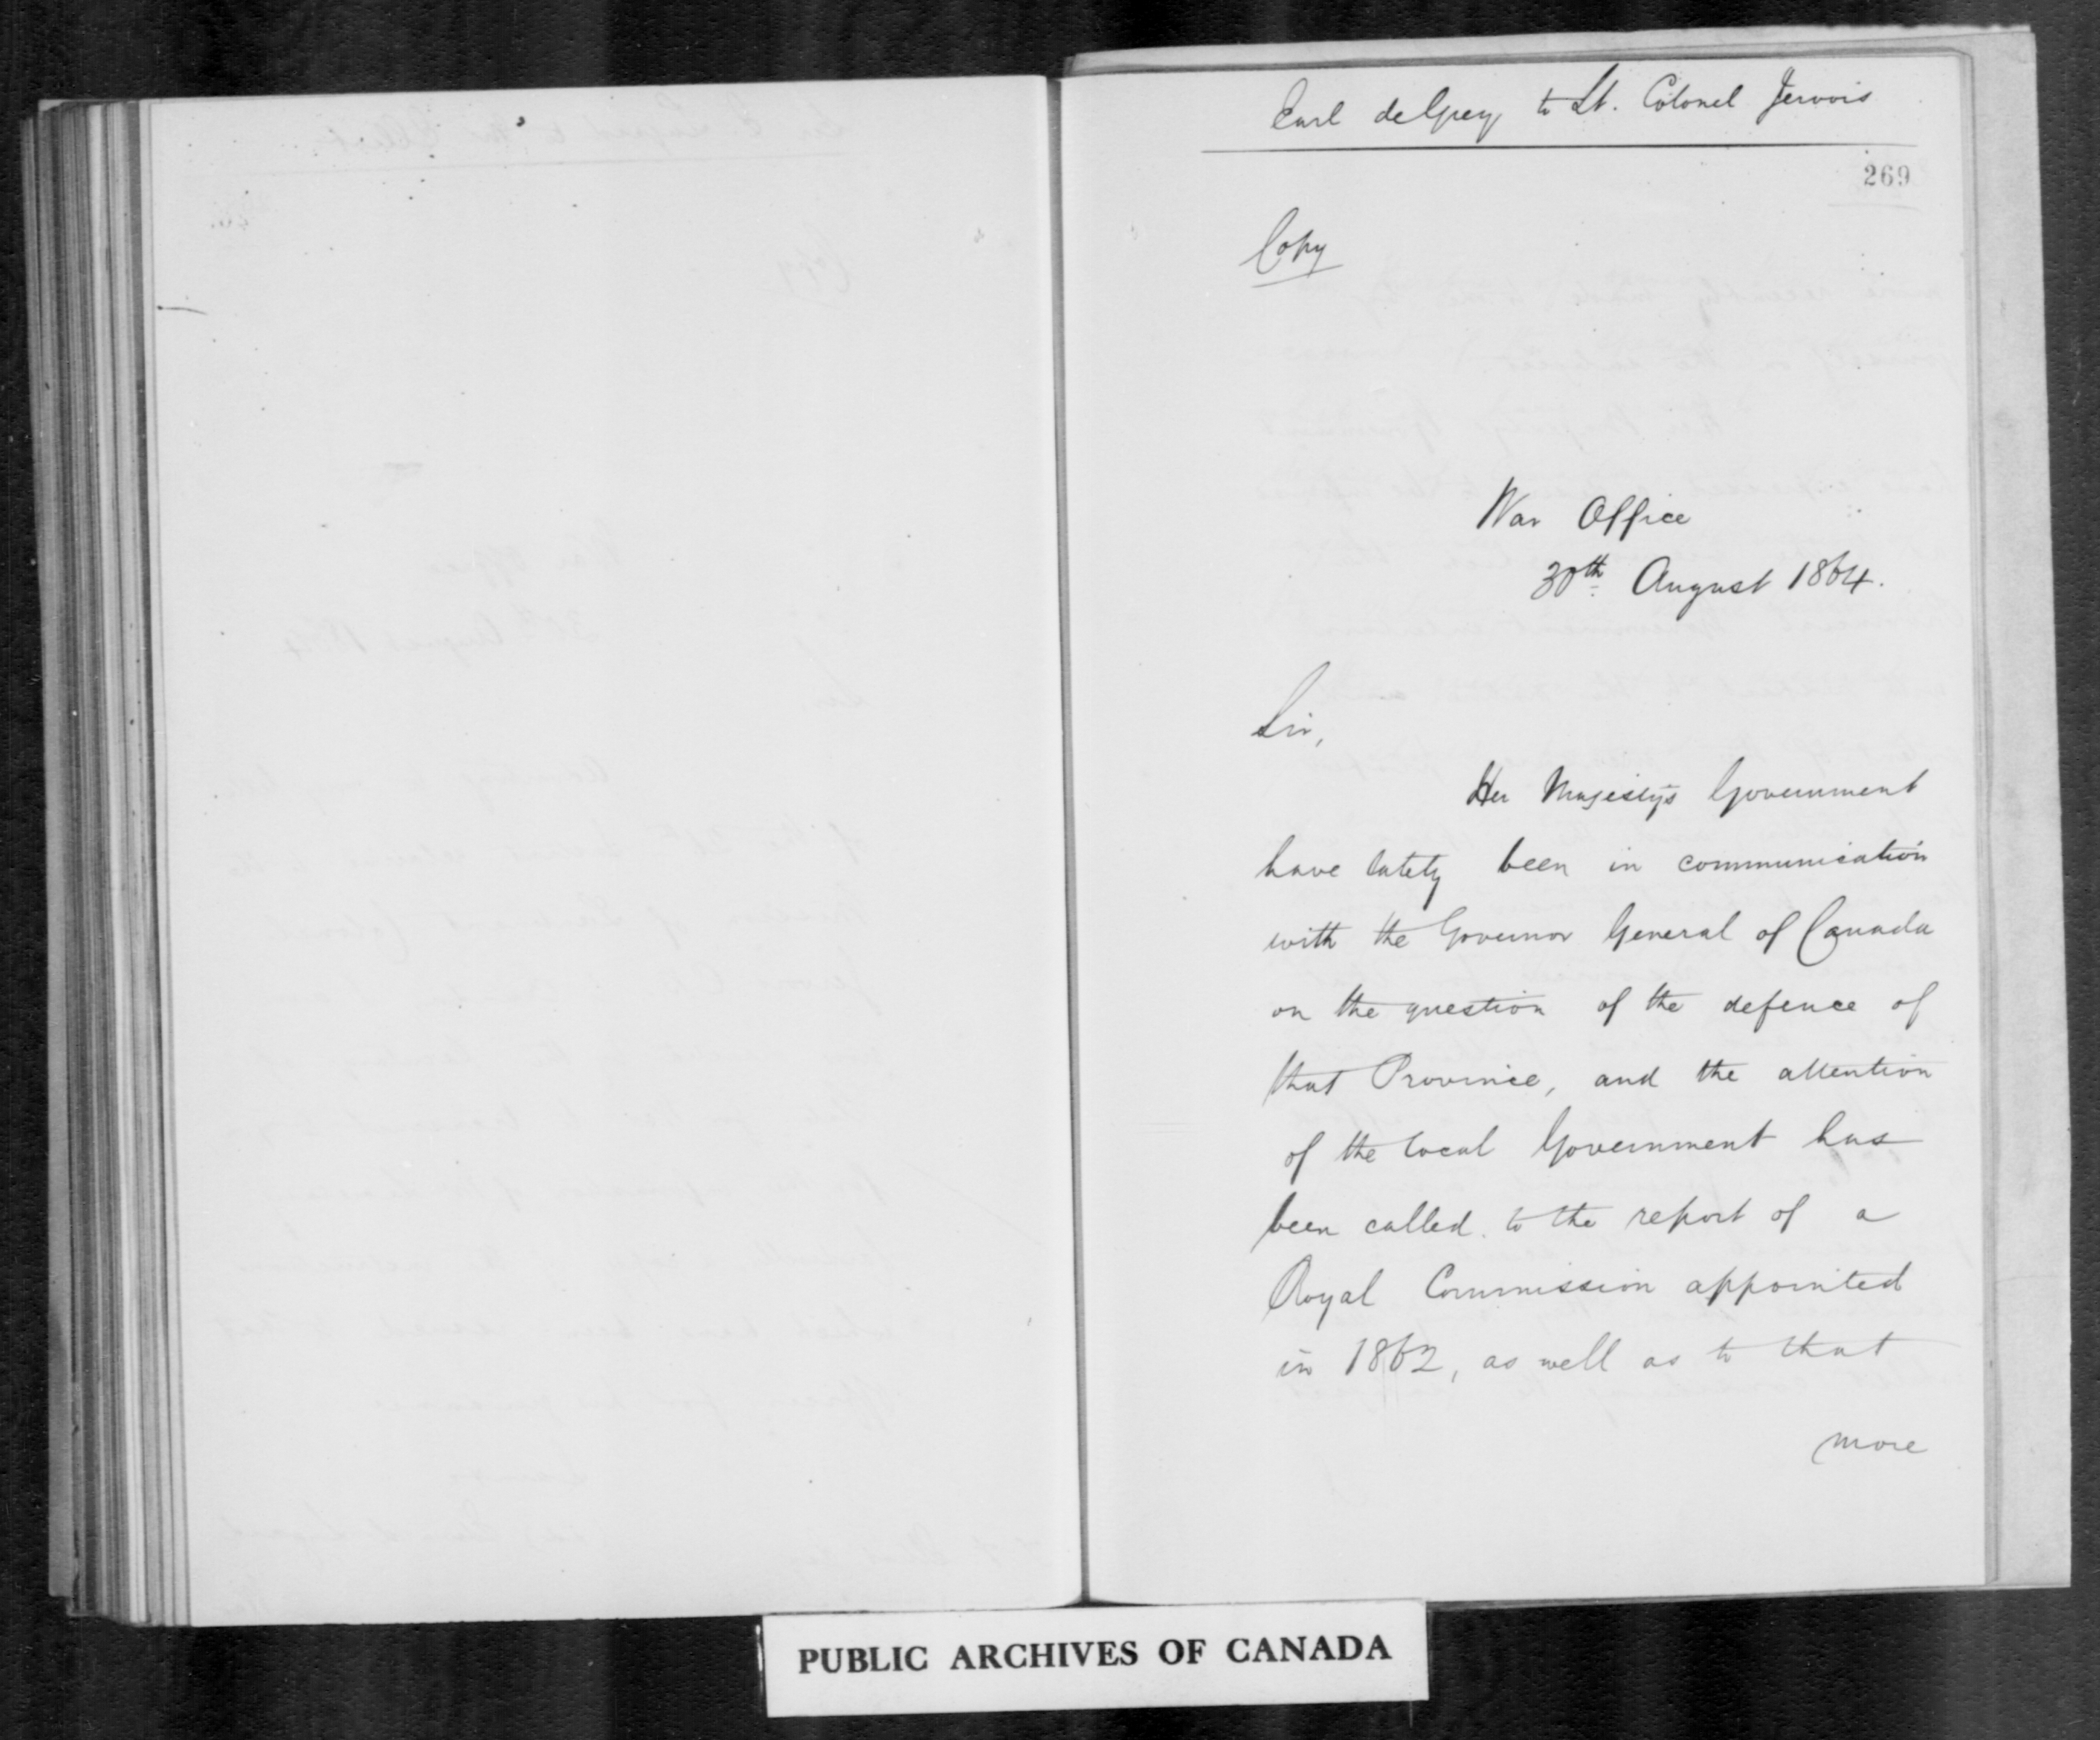 Earl de Grey to Lt. Colonel Jervois
269
Copy
War Office
30th August 1864.
Sir,
Her Majesty's Government
have lately been in communication
with the Governor General of Canada
on the question of the defence of
that Province, and the attention
of the local Government has
been called to the report of a
Royal Commission appointed
in 1862, as well as to that
more
PUBLIC ARCHIVES OF CANADA